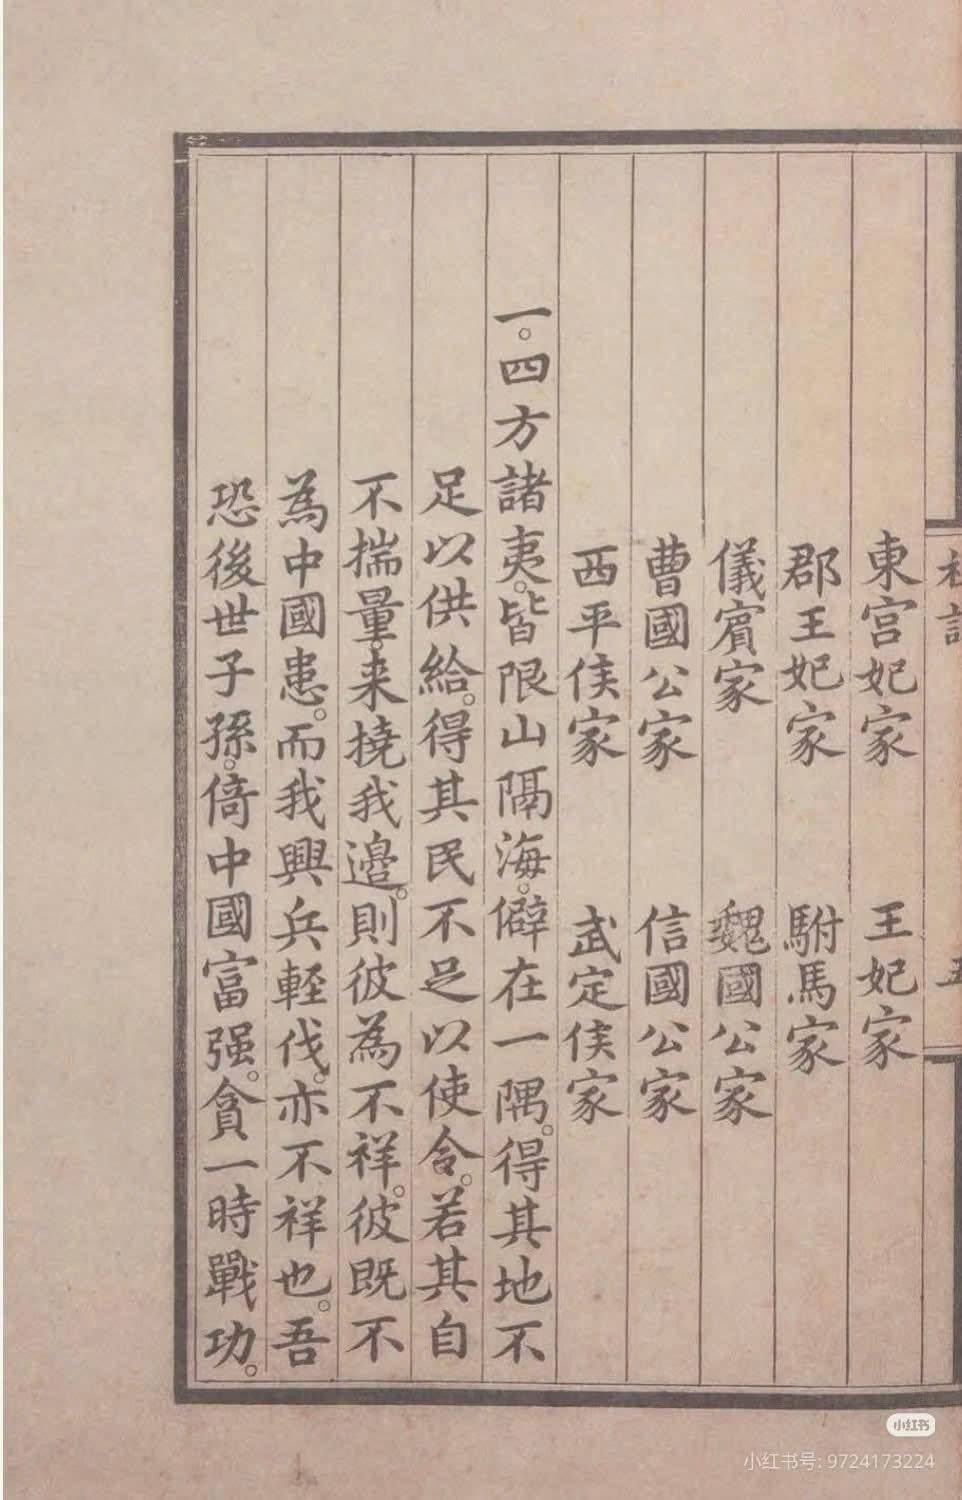 祖訓 五
東宮妃家 王妃家
郡王妃家 駙馬家
儀賓家 魏國公家
曹國公家 信國公家
西平侯家 武定侯家
一。四方諸夷。皆限山隔海。僻在一隅。得其地不
足以供給。得其民不足以使令。若其自
不揣量。来撓我邊。則彼為不祥。彼既不
為中國患。而我興兵輕伐。亦不祥也。吾
恐後世子孫。倚中國富强。貪一時戰功。
小红书
小红书号: 9724173224